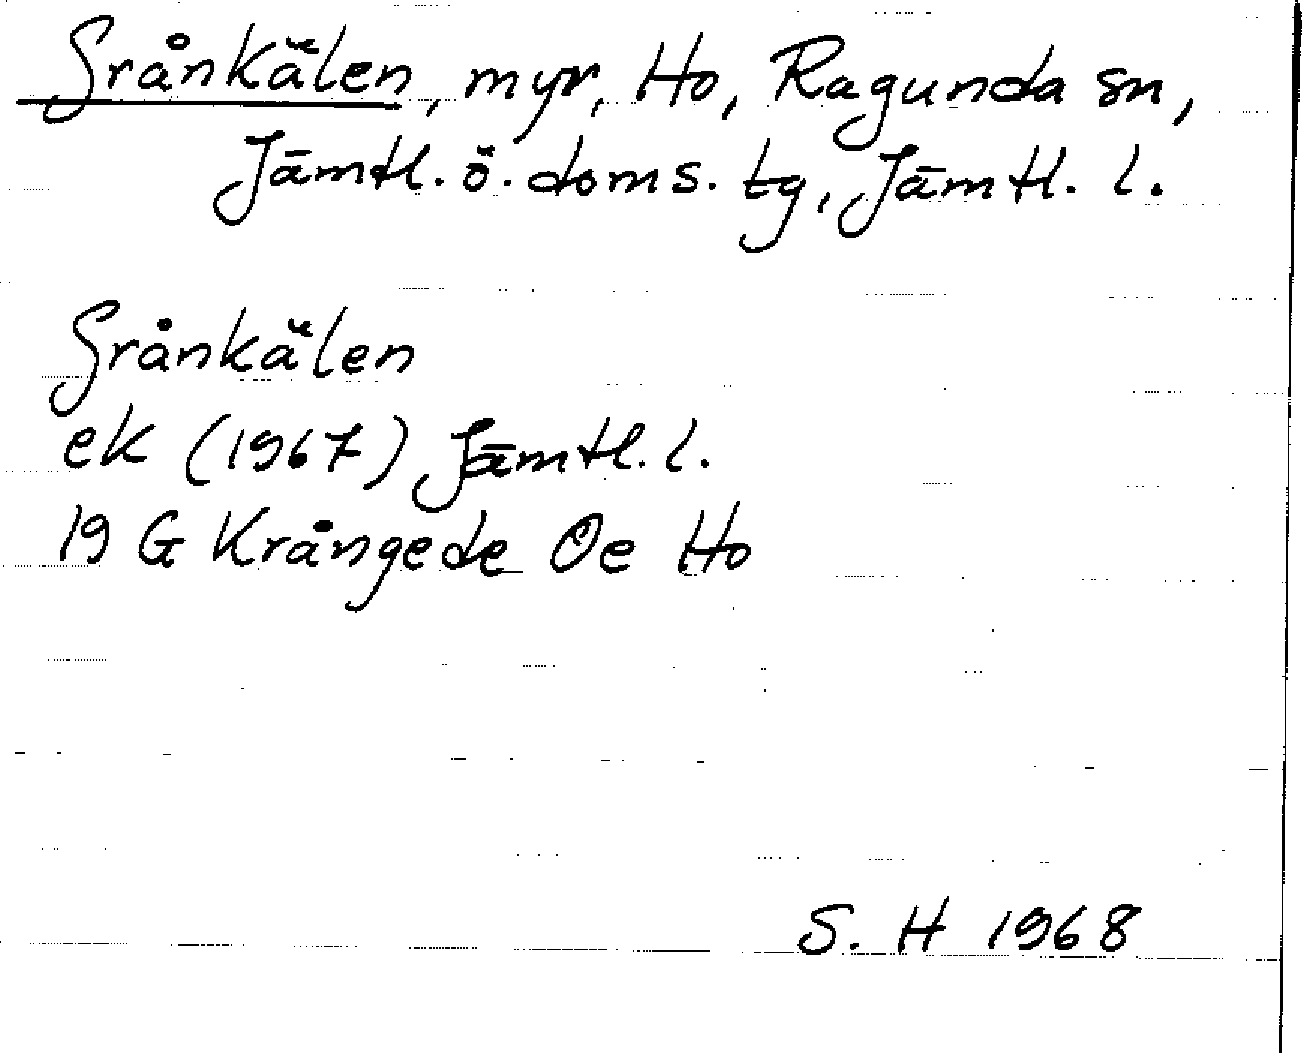 Grånkälen, myr, Ho, Ragunda sn,
Jämtl. ö. doms. tg, Jämtl. l.
Grånkälen
ek (1967) Jämtl. l.
19 G Krångede Oe Ho
S. H 1968